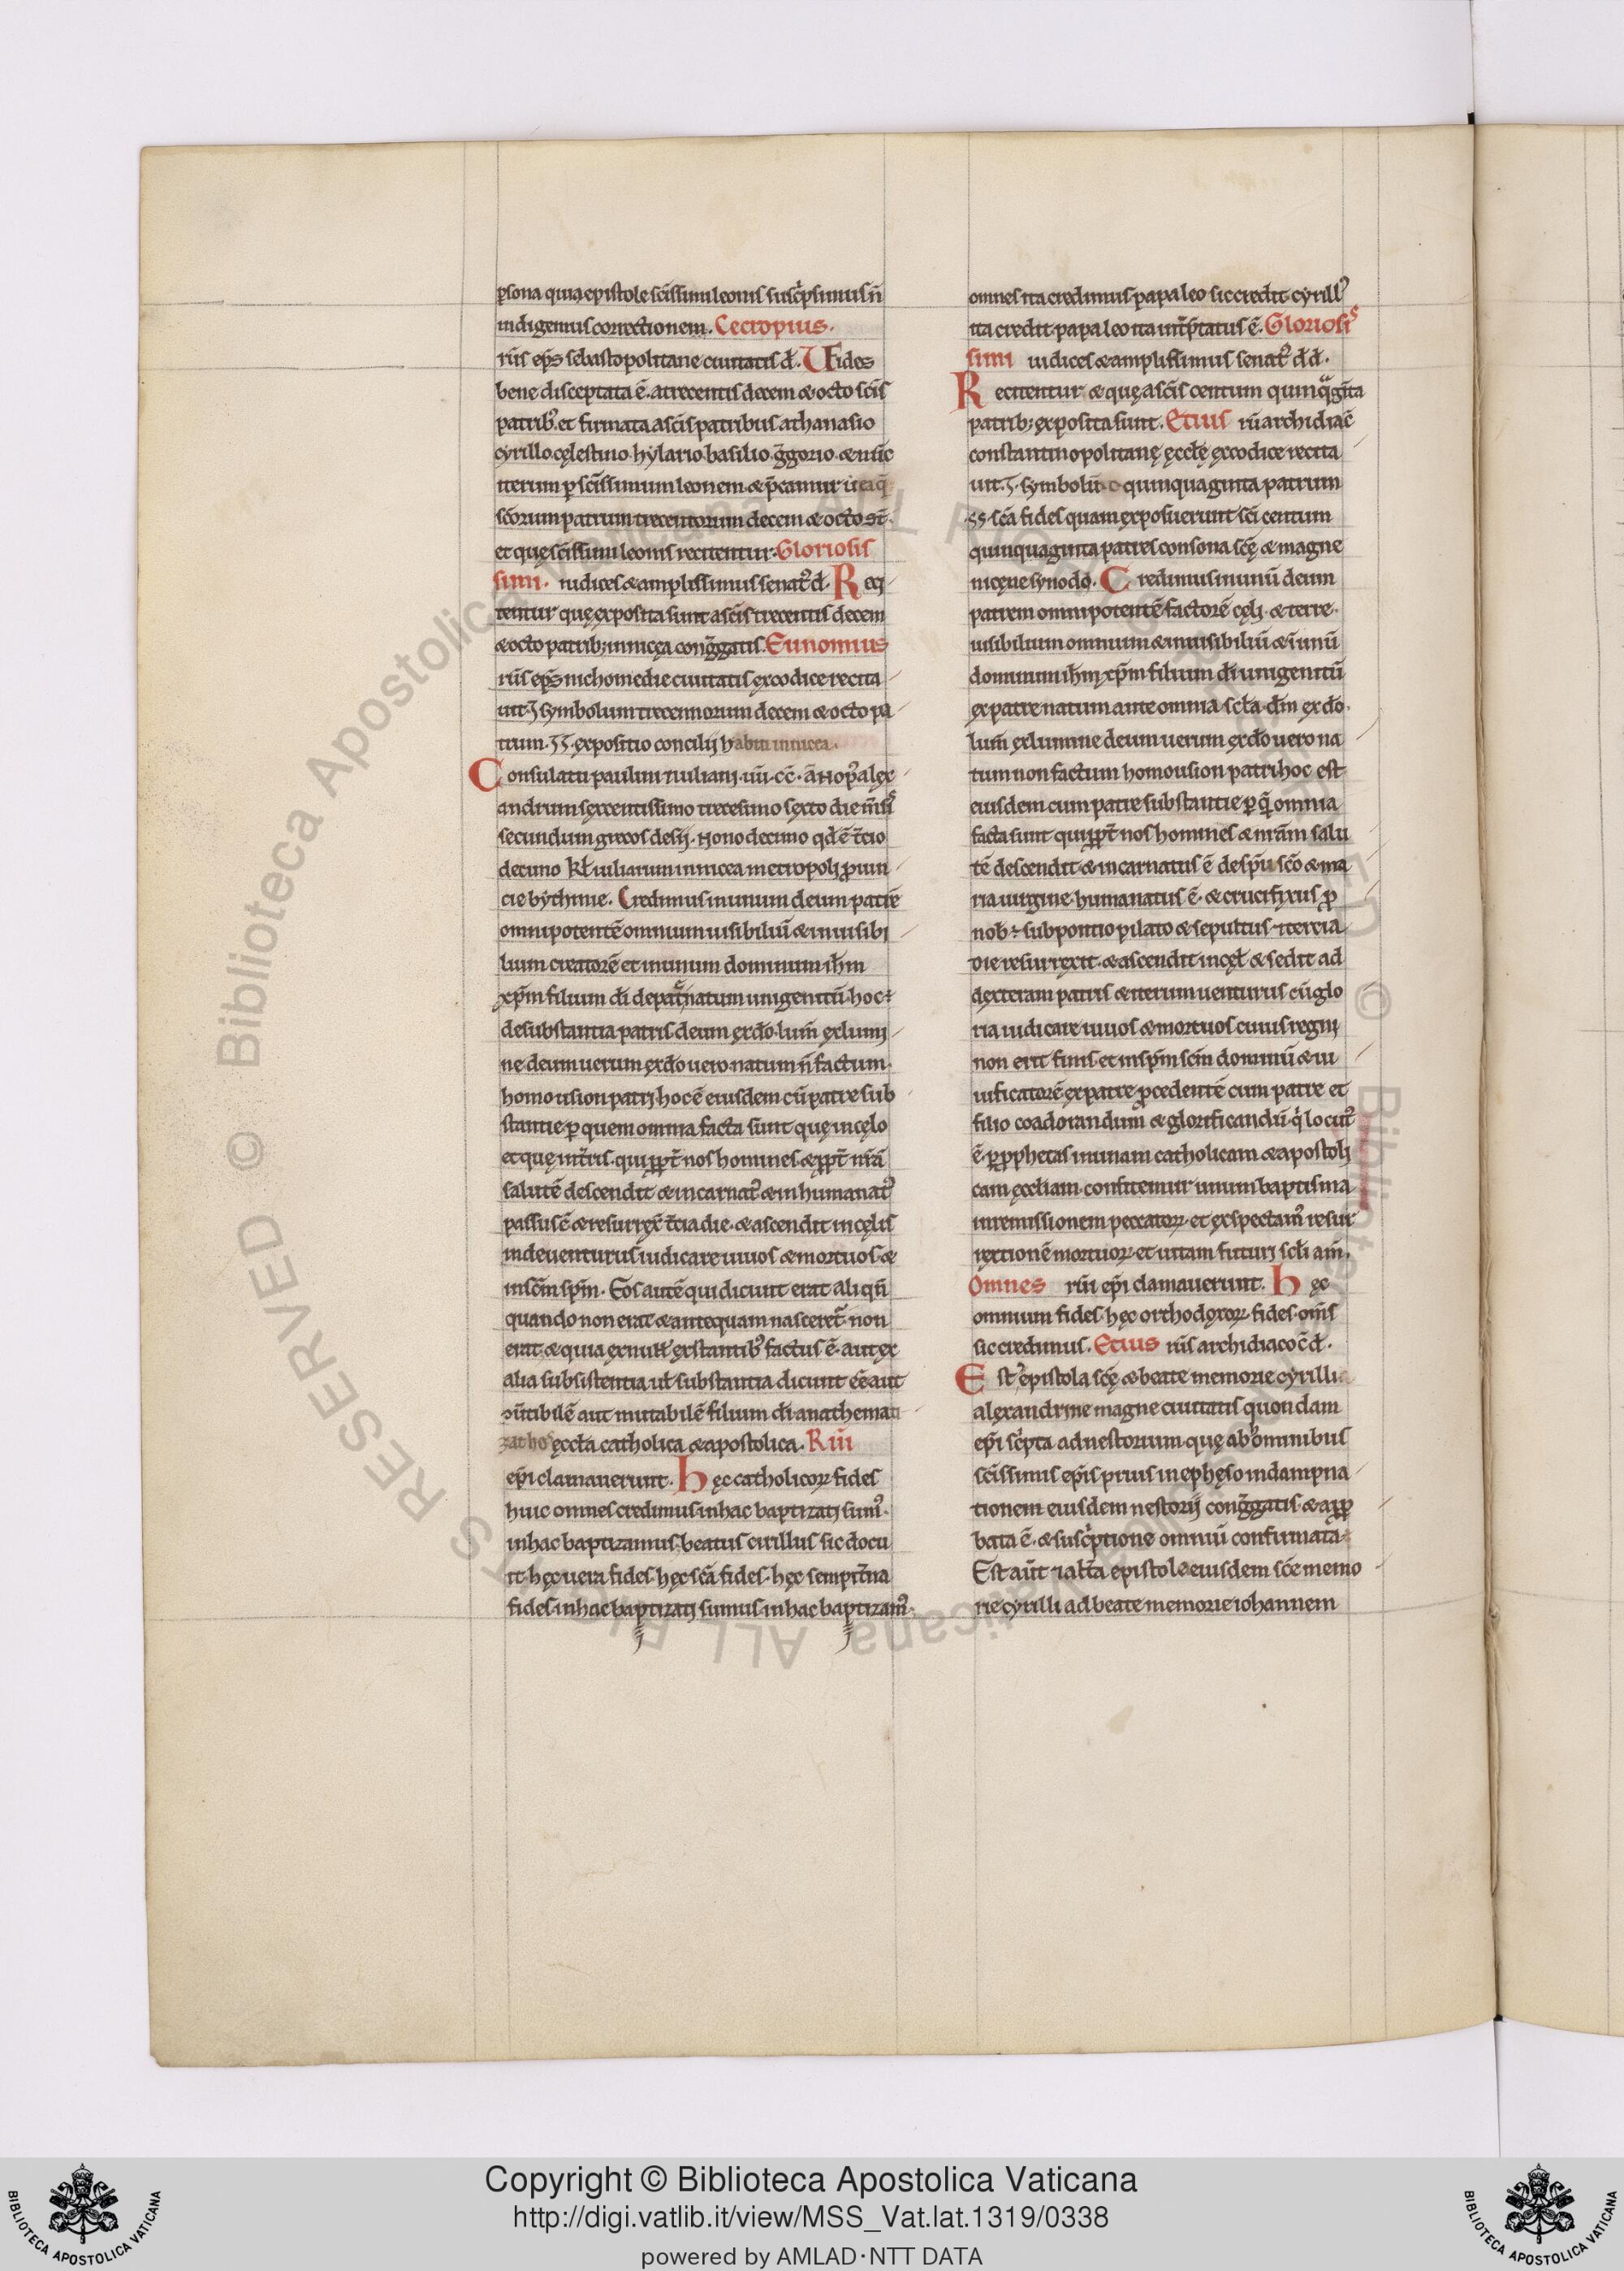 ꝑsona quia epistole sc̄issimi leonis susc̄psimus n̄
indigemus correctionem. Cecropius.
rūs ep̄s sebastopolitane ciuitatis d̄. Fides
bene disceptata ē. atrecentis decem & octo sc̄is
patribꝰ. et firmata asc̄is patribus athanasio
cyrillo. cęlestino. hylario. basilio. g̃gorio. & nūc
iterum ꝑ sc̄issimum leonem. & p̄camur
sc̄orum patrum trecentorum decem & octo st̄.
et quę sc̄issimi leonis recitentur. Gloriosis
simi. iudices & amplissimus senatꝰ d̄. Reci
tentur quę exposita sunt asc̄is trecentis decem
& octo patrib; innicęa cong̃gatis. Eunomius
rūs ep̄s nichomedie ciuitatis ęx codice recita
uit. Ʒ symbolum trecentorum decem & octo pa
trum. ƷƷ. expositio concilij habiti innicea.
Consulatu paulini & iuliani. uū. cc̄. ānoꝝ alęx
andrum sęxcentissimo tricesimo sęxto die m̄sis
secundum grecos desij. nono decimo qd̄ ē t̄cio
decimo kl̄ iuliarum innicea metropoli ꝓuin
cie bythinie. Credimus inunum deum patrē
omnipotentē omnium uisibiliū & inuisibi
lium creatorē et inunum dominum ih̄m
xp̄m filium dī depatre natum unigenitū. hoc ÷
desubstantia patris deum ęxdō. lum̄ ęxlumi
ne deum uerum ęxdō uero. natum n̄ factum.
homousion patri. hoc ē eiusdem cū patre sub
stantie ꝑ quem omnia facta sunt quę incęlo
et quę int̄ris. qui ꝓpt̄ nos homines & ꝓpt̄ nr̄ā
salutē descendit & incarnatꝰ & inhumanatꝰ
passus ē & resurręx̄ t̄cia die. & ascendit incęlis
inde uenturus iudicare uiuos & mortuos. &
insc̄m sp̄m. Eos autē qui dicunt erat aliqn̄
quando non erat. & antequam nasceret̃ non
erat. & quia ęx null̄ ęxstantibꝰ factus ē. aut ęx
alia subsistentia ul̄ substantia dicunt ēē aut
ↄūtibilē aut mutabilē filium dī. anathemati
zat hos ęccl̄a catholica & apostolica. Rm̄i
ep̄i clamauerunt. Hęc catholicoꝝ fides
huic omnes credimus. inhac baptizati sumꝰ.
inhac baptizamus. beatus cirillus sic docu
it. hęc uera fides. hęc sc̄a fides. hęc sempit̄na
fides. inhac baptizati sumus. inhac baptizamꝰ.
omnes ita credimus. papa leo sic credit. cyrillꝰ
ita credit. papa leo ita int̄p̄tatus ē. Gloriosis
simi iudices & amplissimus senatꝰ d̄d̄.
Recitentur & quę asc̄is centum quinq̃gīta
patrib; ęxposita sunt. Etius rū archidiac̄
constantinopolitanę ęccl̄ę ęxcodice recita
uit. Ʒ. symbolū. quinquaginta patrum
ƷƷ. sc̄a fides quam ęxposuerunt sc̄i centum
quinquaginta patres consona sc̄ę & magne
nicęne synodo. Credimus inunū deum
patrem omnipotentē factorē cęli. & terre.
uisibilium omnium & inuisibiliū & inunū
dominum ih̄m xp̄m filium dī unigenitū
ęxpatre natum ante omnia scl̄a. dm̄ ęxdō.
lum̄ ęxlumine deum uerum ęxdō uero na
tum non factum homousion patri hoc est
eiusdem cum patre substantie ꝑ q̄ omnia
facta sunt qui ꝓpt̄ nos homines & nr̄am salu
tē descendit & incarnatus ē despū sc̄o & ma
ria uirgine. humanatus ē. & crucifixus ꝓ
nob ÷ subpontio pilato & sepultus. tercia
die resurręxit. & ascendit incęl̄. & sedit ad
dęxteram patris & iterum uenturus cū glo
ria iudicare uiuos & mortuos. cuius regni
non erit finis. et insp̄m sc̄m dominū & ui
uificatorē ęxpatre ꝓcedentē cum patre et
filio coadorandum & glorificandū. qi locutꝰ
ē. ꝑ ꝓphetas inunam catholicam & apostoli
cam ęccl̄iam. confitemur unum baptisma
inremissionem peccatoꝝ. et ęxspectamꝰ resur
rectionē mortuoꝝ. et uitam futuri scl̄i am̄.
Omnes rm̄i ep̄i clamauerunt. Hęc
omnium fides. hęc orthodoxoꝝ fides. om̄s
sic credimus. Etius rūs archidiaco c̄ d̄.
Est epistola sc̄ę & beate memorie cyrilli
alęxandrine magne ciuitatis quondam
ep̄i sc̄pta adnestorium. quę ab omnibus
sc̄issimis ep̄is prius inephęso indampna
tionem eiusdem nestorij cong̃gatis. & aꝓ
bata ē. & susc̄ptione omniū confirmata.
Est aūt & alt̄a epistola eiusdem sc̄e memo
rie cyrilli adbeate memorie iohannem
Copyright © Biblioteca Apostolica Vaticana
http://digi.vatlib.it/view/MSS_Vat.lat.1319/0338
powered by AMLAD·NTT DATA